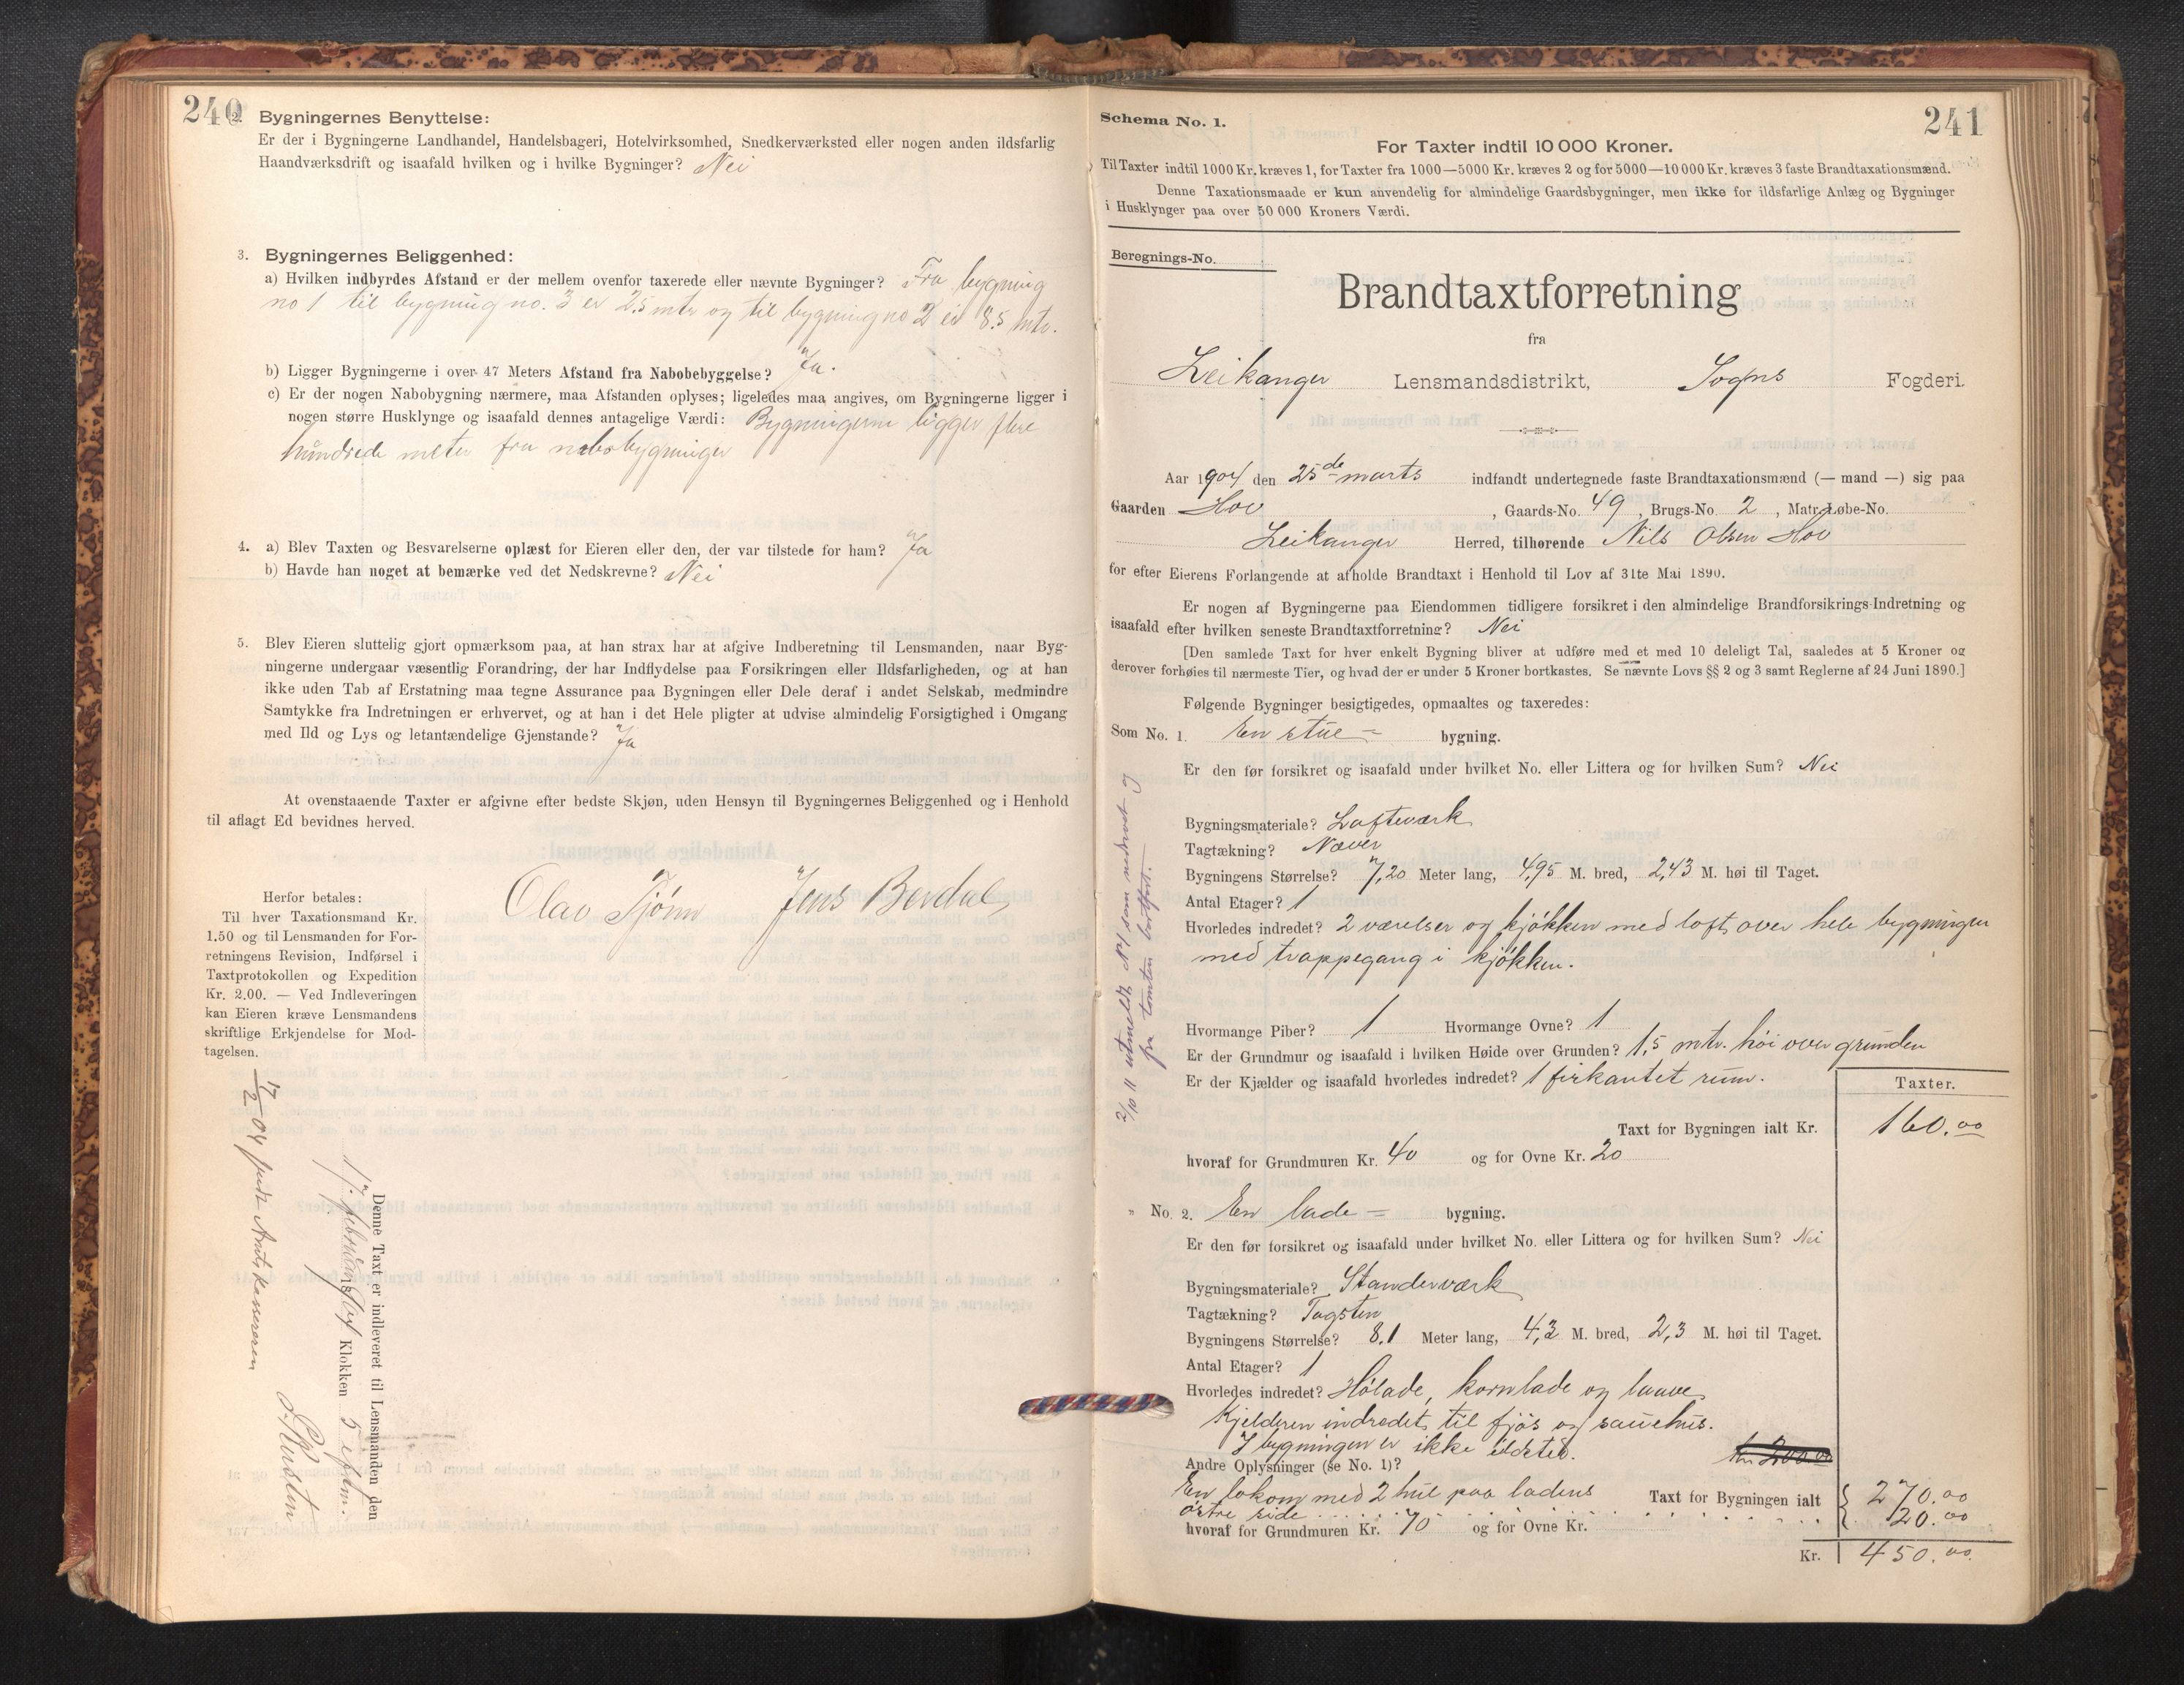 240
2. Bygningernes Benyttelse:
Er der i Bygningerne Landhandel, Handelsbageri, Hotelvirksomhed, Snedkerværksted eller nogen anden ildsfarlig
Haandværksdrift og isaafald hvilken og i hvilke Bygninger? Nei
3. Bygningernes Beliggenhed:
a) Hvilken indbyrdes Afstand er der mellem ovenfor taxerede eller nævnte Bygninger? Fra bygning
no 1 til bygning no. 3 er 25 mtr og til bygning no 2 er 8.5 mtr.
b) Ligger Bygningerne i over 47 Meters Afstand fra Nabobebyggelse? Ja.
c) Er der nogen Nabobygning nærmere, maa Afstanden oplyses; ligeledes maa angives, om Bygningerne ligger i
nogen større Husklynge og isaafald dennes antagelige Værdi: Bygningerne ligger flere
hundrede meter fra nabobygninger
4. a) Blev Taxten og Besvarelserne oplæst for Eieren eller den, der var tilstede for ham? Ja
b) Havde han noget at bemærke ved det Nedskrevne? Nei
5. Blev Eieren sluttelig gjort opmærksom paa, at han strax har at afgive Indberetning til Lensmanden, naar Byg-
ningerne undergaar væsentlig Forandring, der har Indflydelse paa Forsikringen eller Ildsfarligheden, og at han
ikke uden Tab af Erstatning maa tegne Assurance paa Bygningen eller Dele deraf i andet Selskab, medmindre
Samtykke fra Indretningen er erhvervet, og at han i det Hele pligter at udvise almindelig Forsigtighed i Omgang
med Ild og Lys og letantændelige Gjenstande? Ja
At ovenstaaende Taxter er afgivne efter bedste Skjøn, uden Hensyn til Bygningernes Beliggenhed og i Henhold
til aflagt Ed bevidnes herved.
Olav Tjønn Jens Bendal
Herfor betales:
Til hver Taxationsmand Kr.
1.50 og til Lensmanden for For-
retningens Revision, Indførsel i
Taxtprotokollen og Expedition
Kr. 2.00. — Ved Indleveringen
kan Eieren kræve Lensmandens
skriftlige Erkjendelse for Mod-
tagelsen.
Denne Taxt er indleveret til Lensmanden den
17 februar 1904 Klokken 5 eftm.
17/2 04 Amtskassereren
241
Schema No. 1.
For Taxter indtil 10 000 Kroner.
Til Taxter indtil 1000 Kr. kræves 1, for Taxter fra 1000—5000 Kr. kræves 2 og for 5000—10 000 Kr. kræves 3 faste Brandtaxationsmænd.
Denne Taxationsmaade er kun anvendelig for almindelige Gaardsbygninger, men ikke for ildsfarlige Anlæg og Bygninger
i Husklynger paa over 50 000 Kroners Værdi.
Beregnings-No.
Brandtaxtforretning
fra
Leikanger Lensmandsdistrikt, Sogns Fogderi.
Aar 1904 den 25de marts indfandt undertegnede faste Brandtaxationsmænd (— mand —) sig paa
Gaarden Hov , Gaards-No. 49 , Brugs-No. 2 , Matr.-Løbe-No.
Leikanger Herred, tilhørende Nils Olsen Hov
for efter Eierens Forlangende at afholde Brandtaxt i Henhold til Lov af 31te Mai 1890.
Er nogen af Bygningerne paa Eiendommen tidligere forsikret i den almindelige Brandforsikrings-Indretning og
isaafald efter hvilken seneste Brandtaxtforretning? Nei
[Den samlede Taxt for hver enkelt Bygning bliver at udføre med et med 10 deleligt Tal, saaledes at 5 Kroner og
derover forhøies til nærmeste Tier, og hvad der er under 5 Kroner bortkastes. Se nævnte Lovs §§ 2 og 3 samt Reglerne af 24 Juni 1890.]
Følgende Bygninger besigtigedes, opmaaltes og taxeredes:
Som No. 1. En stue - bygning.
Er den før forsikret og isaafald under hvilket No. eller Littera og for hvilken Sum? Nei
Bygningsmateriale? Lafteværk
Tagtækning? Næver
Bygningens Størrelse? 7,20 Meter lang, 4,95 M. bred, 2,43 M. høi til Taget.
Antal Etager? 1
Hvorledes indredet? 2 værelser og kjøkken med loft over hele bygningen
med trappegang i kjøkken.
Hvormange Piber? 1 Hvormange Ovne? 1
Er der Grundmur og isaafald i hvilken Høide over Grunden? 1,5 mtr. høi over grunden
Er der Kjælder og isaafald hvorledes indredet? 1 firkantet rum.
Taxter.
Taxt for Bygningen ialt Kr. 160.00
hvoraf for Grundmuren Kr. 40 og for Ovne Kr. 20
2/10 11 utmeldt No 1 som nedrevet og
fra tomten bortført.
" No. 2. En lade - bygning.
Er den før forsikret og isaafald under hvilket No. eller Littera og for hvilken Sum? Nei
Bygningsmateriale? Standerværk
Tagtækning? Tagsten
Bygningens Størrelse? 8.1 Meter lang, 4,3 M. bred, 2,3 M. høi til Taget.
Antal Etager? 1
Hvorledes indredet? Hølade, kornlade og laave.
Kjelderen indredet til fjøs og sauehus.
I bygningen er ikke ildsted. Kr 200.00
Andre Oplysninger (se No. 1)?
En lokom med 2 hul paa ladens Taxt for Bygningen ialt 270.00
østre side 20.00
hvoraf for Grundmuren Kr. 70 og for Ovne Kr.
Kr. 450.00